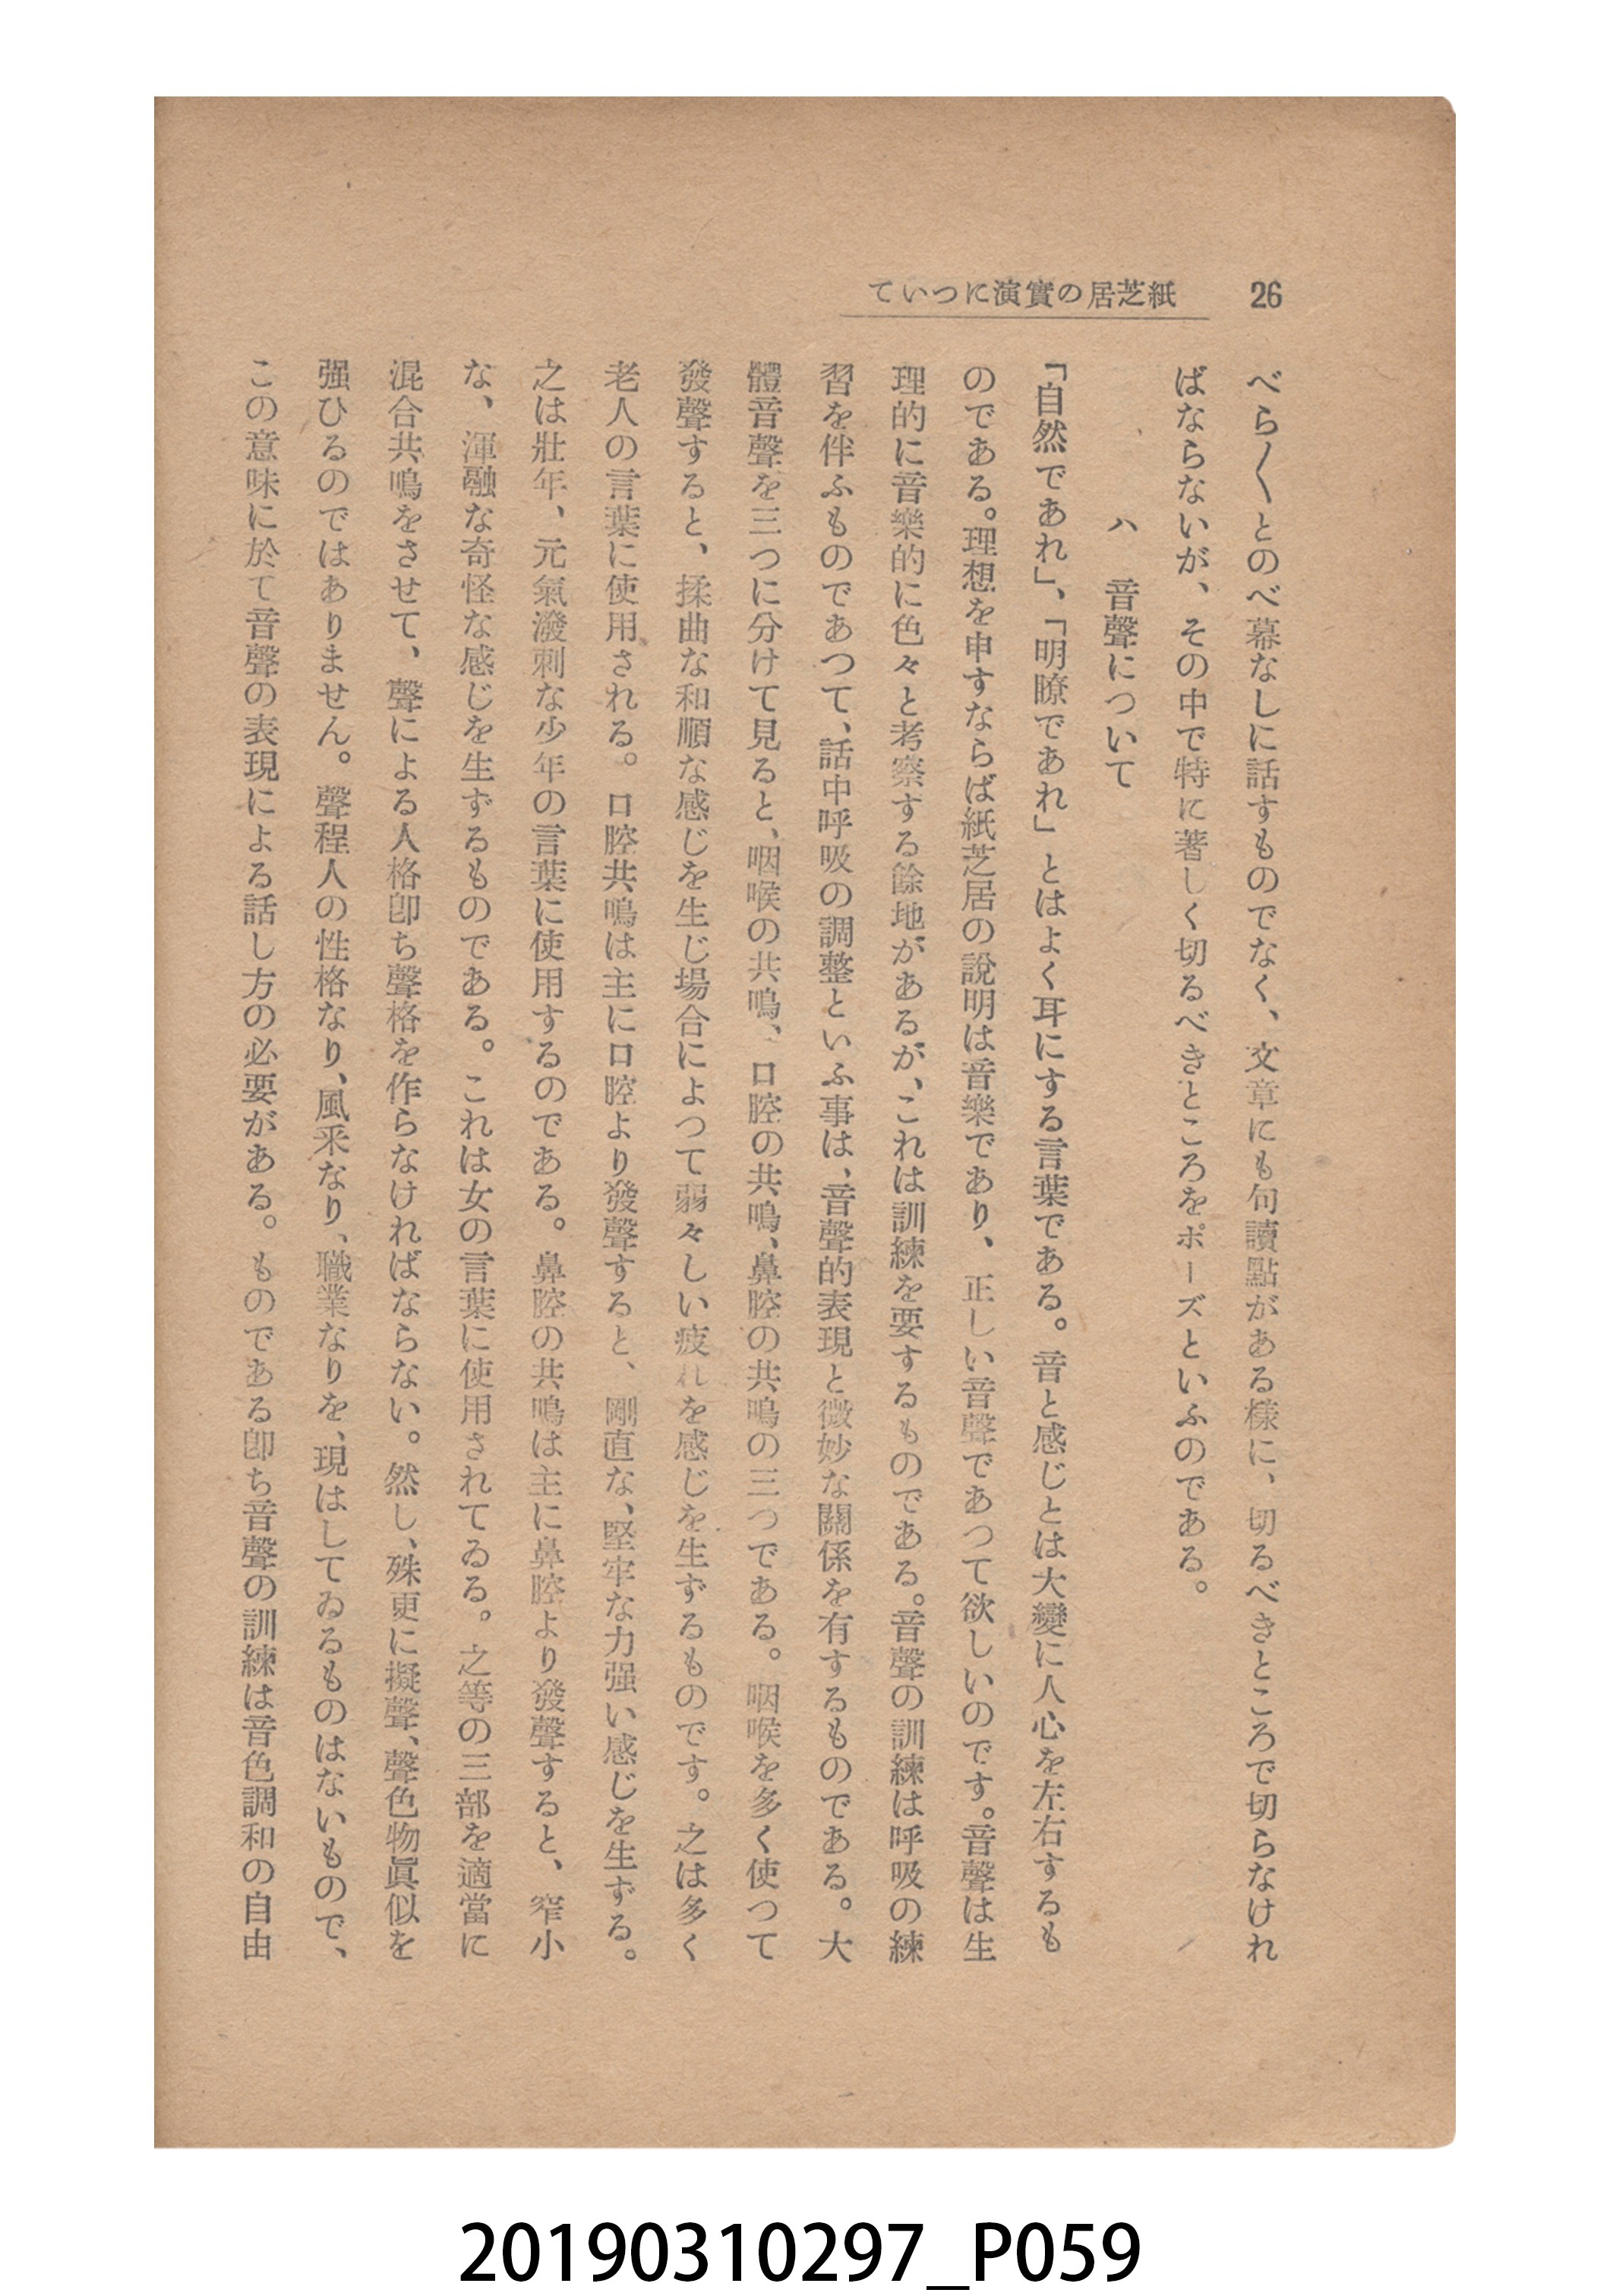 26
ていつに演實の居芝紙
べら〱とのべ幕なしに話すものでなく、文章にも句讀點がある樣に、切るべきところで切らなけれ
ばならないが、その中で特に著しく切るべきところをポーズといふのである。
ハ　音聲について
「自然であれ」、「明瞭であれ」とはよく耳にする言葉である。音と感じとは大變に人心を左右するも
のである。理想を申すならば紙芝居の說明は音樂であり、正しい音聲であつて欲しいのです。音聲は生
理的に音樂的に色々と考察する餘地があるが、これは訓練を要するものである。音聲の訓練は呼吸の練
習を伴ふものであつて、話中呼吸の調整といふ事は、音聲的表現と微妙な關係を有するものである。大
體音聲を三つに分けて見ると、咽喉の共鳴、口腔の共鳴、鼻腔の共鳴の三つである。咽喉を多く使つて
發聲すると、揉曲な和順な感じを生じ場合によつて弱々しい疲れを感じを生ずるものです。之は多く
老人の言葉に使用される。口腔共鳴は主に口腔より發聲すると、剛直な、堅牢な力强い感じを生ずる。
之は壯年、元氣潑剌な少年の言葉に使用するのである。鼻腔の共鳴は主に鼻腔より發聲すると、窄小
な、渾融な奇怪な感じを生ずるものである。これは女の言葉に使用されてゐる。之等の三部を適當に
混合共鳴をさせて、聲による人格卽ち聲格を作らなければならない。然し、殊更に擬聲、聲色物眞似を
强ひるのではありません。聲程人の性格なり、風釆なり、職業なりを、現はしてゐるものはないもので、
この意味に於て音聲の表現による話し方の必要がある。ものである卽ち音聲の訓練は音色調和の自由
20190310297_P059